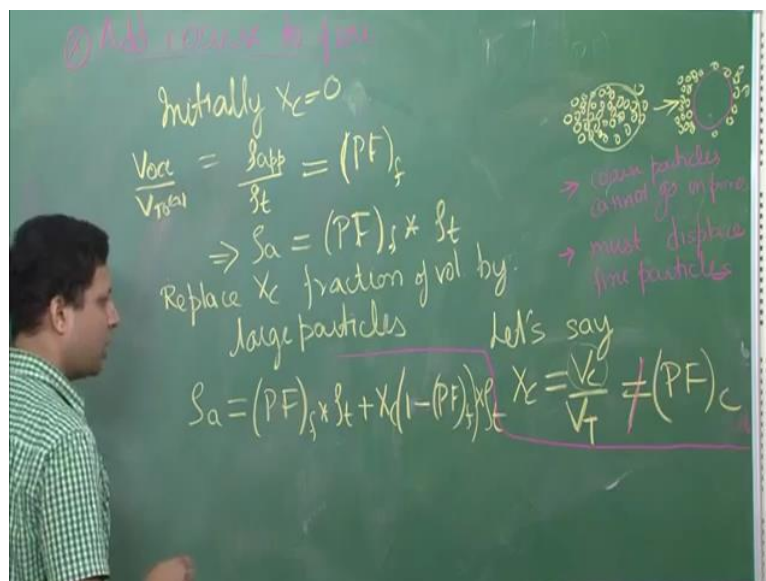 Add coarse to fine
Initially X_c = 0
V_occ / V_Total = ρ_app / ρ_t = (PF)_f
⇒ ρ_a = (PF)_f * ρ_t
Replace X_c fraction of vol by
large particles
ρ_a = (PF)_f * ρ_t + X_c(1-(PF)_f)*ρ_t
Let's say
X_c = V_c / V_T ≠ (PF)_c
→ coarse particles
cannot go in fine
→ must displace
fine particles